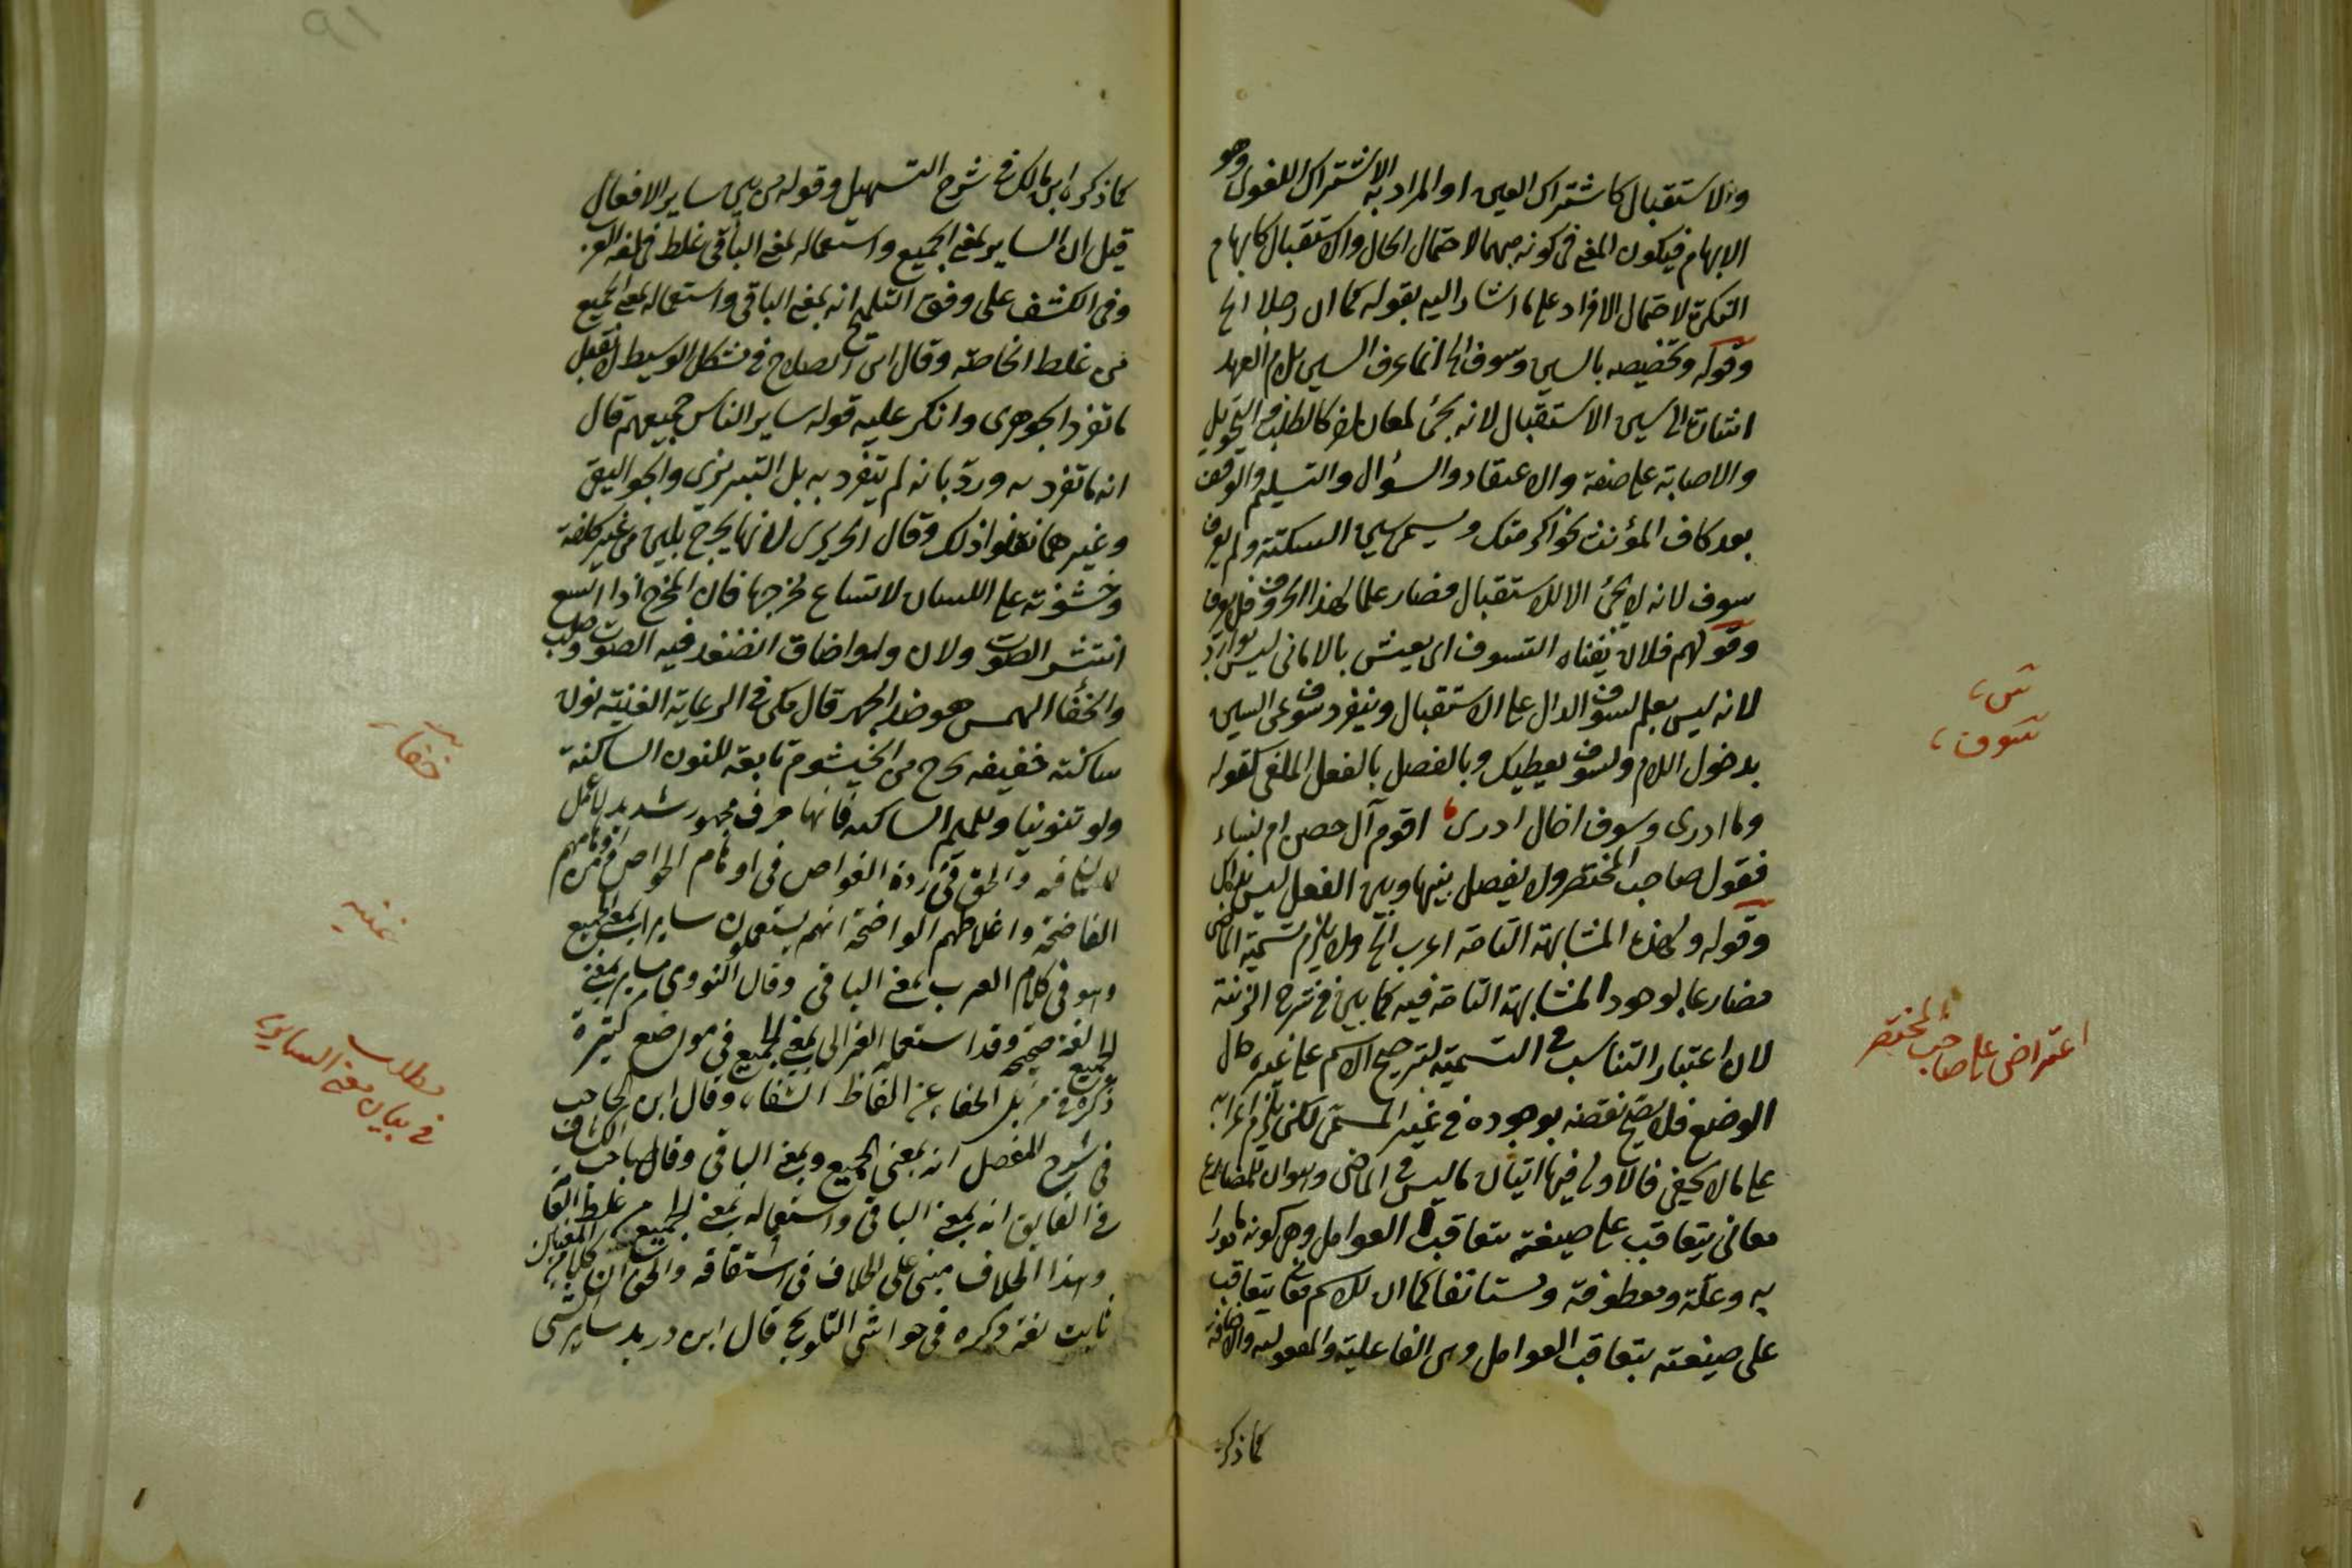 والاستقبال كاشتراك العين او المراد به الاشتراك اللغوى وهو
الابهام فيكون المعنى فى كونه مبهما لاحتمال الحال والاستقبال كابهام
النكرة لاحتمال الافراد على ما اشار اليه بقوله كما ان رجلا الخ
وقوله وتخصيصه بالسين وسوف الخ انما عرف السين بلام العهد
اشارة الى سين الاستقبال لانه يجئ لمعان اخر كالطلب والتحويل
والاصابة على صفة والاعتقاد والسؤال والتسليم والوقف
بعد كاف المؤنث نحو اكرمتكس ويسمى سين السكتة ولم يعرف
سوف لانه لا يجئ الا للاستقبال فصار علما لهذا الحرف فلا يعرف
وقولهم فلان يقتات السوف اى يعيش بالامانى ليس بوارد
لانه ليس بعلم لسوف الدال على الاستقبال وينفرد سوف عن السين
بدخول اللام ولسوف يعطيك وبالفصل بالفعل الملغى كقوله
وما ادرى وسوف اخال ادرى ، اقوم آل حصن ام نساء
فقول صاحب المختصر ولا يفصل بينها وبين الفعل ليس بكل
وقوله ولهذه المشابهة التامة اعرب الخ ولا يلزم تسمية الماضى
مضارعا لوجود المشابهة التامة فيه كما بين فى شرح الزنده
لان اعتبار التناسب فى التسمية لترجيح الاسم على غيره حال
الوضع فلا يصح نقضه بوجوده فى غير المسمى لكن يلزم اعرابه
على ما لا يخفى فالاولى فيها اتيان ما ليس فى الماضى وهو ان للمضارع
معانى يتعاقب على صيغته بتعاقب العوامل وهى كونه مامورا
به وعلة ومعطوفة ومستانفا كما ان للاسم معان يتعاقب
على صيغته بتعاقب العوامل وهى الفاعلية والمفعولية والاضافة
كما ذكره
س ،
سوف ،
اعتراض على صاحب المختصر
كما ذكره ابن مالك فى شرح التسهيل وقوله من بين ساير الافعال
قيل ان الساير بمعنى الجميع واستعماله بمعنى الباقى غلط فى لغة العرب
وفى الكشف على وفق التلميح انه بمعنى الباقى واستعماله بمعنى الجميع
من غلط الخاصة وقال ابن الصلاح فى مشكل الوسيط لا يقبل
ما تفرد الجوهرى وانكر عليه قوله ساير الناس جميعهم قال
انه ما تفرد به ورد بانه لم يتفرد به بل التبريزى والجواليقى
وغيرهما نقلوا ذلك وقال الحريرى لانها يخرج بلين من غير كلفة
وخشونة على اللسان لاتساع مخرجها فان المخرج اذا اتسع
انتشر الصوت ولان واذا ضاق انضغط فيه الصوت وصلب
والخفا الهمس هو ضد الجهر قال مكى فى الرعاية الغنة نون
ساكنة خفيفة يخرج من الخيشوم تابعة للنون الساكنة
ولو تنوينا وللميم الساكنة فانها حرف مجهور شديد لا عمل
للسان فيه والحق فى درة الغواص فى اوهام الخواص من اوهامهم
الفاضحة واغلاطهم الواضحة انهم يستعملون ساير بمعنى الجميع
وهو فى كلام العرب بمعنى الباقى وقال النووى ساير بمعنى
الجميع لغة صحيحة وقد استعمله الغزالى بمعنى الجميع فى مواضع كثيرة
ذكره فى مزيل الخفاء عن الفاظ الشفاء وقال ابن الحاجب
فى شرح المفصل انه بمعنى الجميع وبمعنى الباقى وقال صاحب الكشاف
فى الفايق انه بمعنى الباقى واستعماله بمعنى الجميع من غلط العامة
وهذا الخلاف مبنى على الخلاف فى اشتقاقه والحق ان كلا من المعنيين
ثابت لغة ذكره فى حواشى التلويح قال ابن دريد ساير شى
خفاء
غنه
مطلب
فى بيان معنى الساير